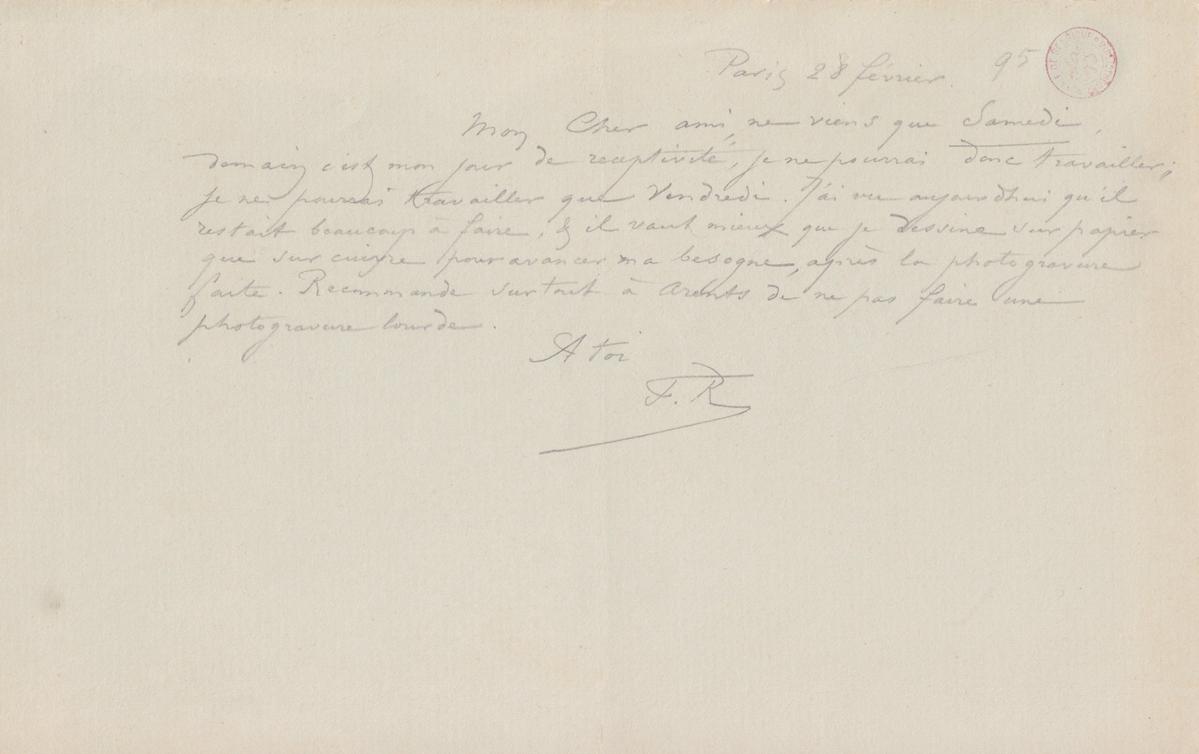 Paris 28 février. 95
Mon Cher ami, ne viens que Samedi,
demain c'est mon jour de réceptivité, je ne pourrai donc travailler;
je ne pourrai travailler que Vendredi. J'ai vu aujourdhui qu'il
restait beaucoup à faire, & il vaut mieux que je dessine sur papier
que sur cuivre pour avancer ma besogne, après la photogravure
faite. Recommande surtout à Arents de ne pas faire une
photogravure lourde.
A toi
F. R